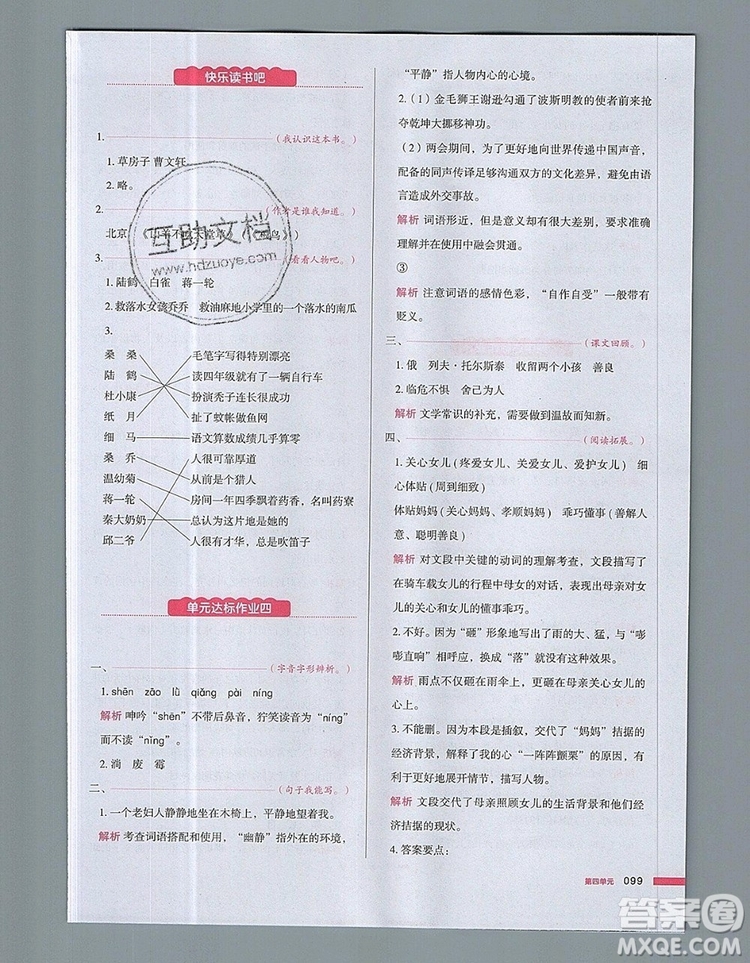 快乐读书吧
1.
(我认识这本书。)
1. 草房子 曹文轩
2. 略。
2.
(作者是谁我知道。)
北京
3.
(看看人物吧。)
1. 陆鹤 白雀 蒋一轮
2. 救落水女孩乔乔 救油麻地小学里的一个落水的南瓜
3.
桑 桑 毛笔字写得特别漂亮
陆 鹤 读四年级就有了一辆自行车
杜小康 扮演秃子连长很成功
纸 月 扯了蚊帐做鱼网
细 马 语文算数成绩几乎算零
桑 乔 人很可靠厚道
温幼菊 从前是个猎人
蒋一轮 房间一年四季飘着药香，名叫药寮
秦大奶奶 总认为这片地是她的
邱二爷 人很有才华，总吹笛子
单元达标作业四
一、
(字音字形辨析。)
1. shēn zāo lǜ qiǎng pài níng
解析 呻吟“shēn”不带后鼻音，狞笑读音为“níng”
而不读“nǐng”。
2. 淌 废 霉
二、
(句子我能写。)
1. 一个老妇人静静地坐在木椅上，平静地望着我。
解析 考查词语搭配和使用，“幽静”指外在的环境，
“平静”指人物内心的心境。
2.（1）金毛狮王谢逊勾通了波斯明教的使者前来抢
夺乾坤大挪移神功。
（2）两会期间，为了更好地向世界传递中国声音，
配备的同声传译足够沟通双方的文化差异，避免由语
言造成外交事故。
解析 词语形近，但意义却有很大差别，要求大家
能够在使用中融会贯通。
③
解析 注意词语的感情色彩，“自作自受”一般带有
贬义。
三、
(课文回顾。)
1. 俄 列夫·托尔斯泰 收留两个小孩 善良
2. 临危不惧 舍己为人
解析 文学常识的补充，需要做到温故而知新。
四、
(阅读拓展。)
1. 关心女儿（疼爱女儿、关爱女儿、爱护女儿） 细
心体贴（周到细致）
体贴妈妈（关心妈妈、孝顺妈妈） 乖巧懂事（善解人
意、聪明善良）
解析 对文段中关键的动词的理解考查，文段写了
在骑车载女儿的行程中母女的对话，表现出母亲对女
儿的关心和女儿的懂事乖巧。
2. 不好。因为“砸”形象地写出了雨的大、猛，与“嘭
嘭直响”相呼应，换成“落”就没有这种效果。
解析 雨点不仅砸在雨伞上，更砸在母亲关心女儿的
心上。
3. 不能删。因为本段是插叙，交代了“妈妈”拮据的
经济背景，更好地解释了我的心“一阵阵颤栗”的原因，有
利于更好地展开情节，描写人物。
解析 文段交代了母亲照顾女儿的生活背景和他们经
济拮据的现状。
4. 答案要点：
第四单元 099
互助文档
www.hdzuoye.com
答案圈
MXQE.COM